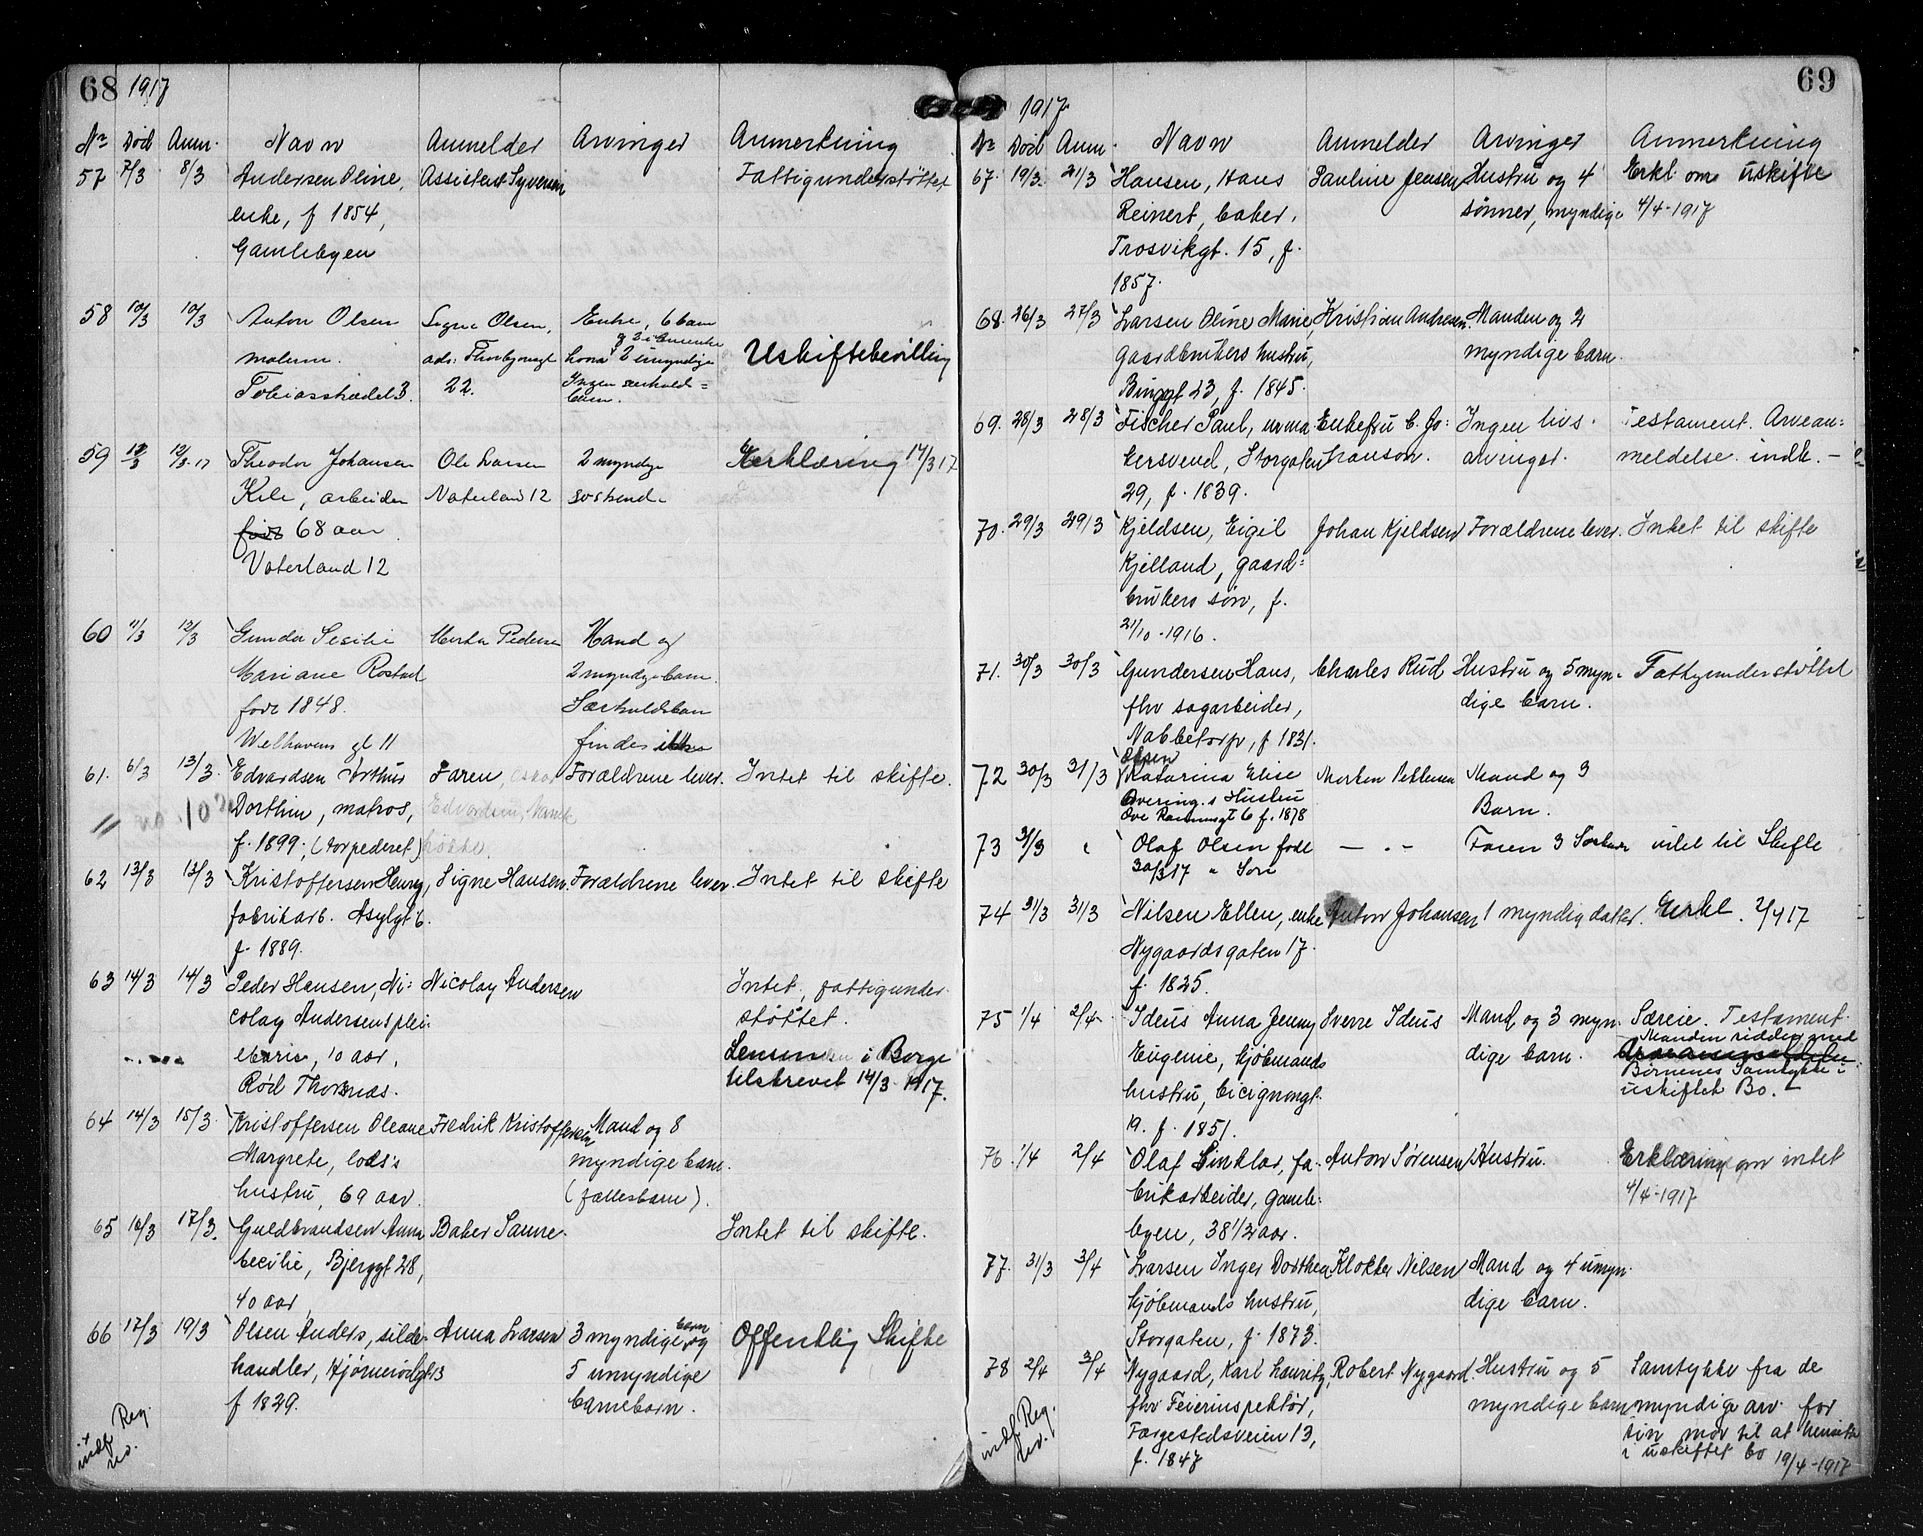 68 1917
No Død Anm. Navn Anmelder Arvinger Anmerkning
57 7/3 8/3 Andersen Oline, Assistent Syversen Fattigunderstøttet
enke, f 1854,
Gamlebyen
58 10/3 10/3 Anton Olsen Signe Olsen, Enke, 6 barn
malerm. ads: hvoraf 2 umyndige Uskiftebevilling
Tobiasstrædet 3. 22. Ingen særkuld=
barn.
59 12/3 12/3-17 Theodor Johansen Ole Larsen 2 myndige Erklæring 14/3 17
Kile, arbeider Vaterland 12 søskend.
født 68 aar
Vaterland 12
60 11/3 12/3 Gunda Sesilie Martha Pedersen Mand og
Mariane Rostad 2 myndige barn.
født 1848. Særkuldsbarn
Welhavens gt 11 findes ikke
61. 6/3 13/3. Edvardsen Arthur Faren, Forældrene lever. Intet til skifte.
Dorthin, matros, Edvardsen,
f. 1899. (torpederet)
62 13/3 13/3 Kristoffersen Henry, Signe Hansen. Forældrene lever. Intet til skifte
fabrikarb. Asylgt 6.
f. 1889.
63 14/3 14/3 Peder Hansen, Ni= Nicolay Andersen Intet, fattigunder
colay Andersens plei= støttet.
10 aar, Lensmanden i Borge
Rød Thorsnæs. tilskrevet 14/3 1917.
64 14/3 15/3. Kristoffersen Oleane Fredrik Kristoffersen Mand og 8
Margrete, lods's myndige barn.
hustru, 69 aar (fællesbarn).
65 16/3 17/3. Guldbrandsen Anna Baker Sanne. Intet til skifte.
Cecilie, Bjerggt 28,
40 aar,
66 17/3 19/3 Olsen Anders, silde- Anna Larsen 3 myndige barn og Offentlig Skifte
handler, 5 umyndige
f 1829. barnebarn.
Reg.
indf.
69
1917
No Død Anm. Navn Anmelder Arvinger Anmerkning
67. 19/3. 21/3 Hansen, Hans Pauline Jensen Hustru og 4 Erkl. om uskifte
Reinert, baker, sønner, myndige 4/4-1917
Trosvikgt. 15, f.
1857.
68. 26/3 27/3 Larsen Oline Marie, Kristian Andresen. Manden og 2
gaardbrukers hustru, myndige barn.
23, f. 1845.
69. 28/3 28/3 Fischer Paul, urma= Enkefru C. Jo= Ingen livs= Testament. Arvean=
kersvend, Storgaten hanson. arvinger. meldelse indk. –
29, f. 1839.
70. 29/3 29/3 Kjeldsen, Eigil Johan Kjeldsen Forældrene lever. Intet til skifte
Kjelland, gaard=
brukers søn, f.
21/10-1916.
71. 30/3 30/3 Gundersen Hans, Charles Rud Hustru og 5 myn= Fattigunderstøttet
fhv sagarbeider, dige barn.
Nabbetorp, f 1831.
Olsen
72 30/3 31/3 Katarina Elise Morten Pettersen Mand og 3
Hustru Barn.
Ove Rammsgt 6 f. 1878
73 31/3 " Olaf Olsen født — . — Faren 3 Søskende intet til Skifte
30/3 17 Søn
74 31/3 31/3 Nilsen Ellen, enke Anton Johansen 1 myndig datter. Erkl. 2/4 17
Nygaardsgaten 17.
f. 1825.
75 1/4 2/4 Ideus Anna Jenny Sverre Ideus Mand og 3 myn= Særeie. Testament.
Manden sidder med
Eugenie, kjøbmands dige barn.
Børnenes Samtykke i
hustru, Cicignongt. uskiftet Bo. –
19. f. 1851.
76 1/4 2/4 Olaf Sinklar, fa= Anton Sørensen Hustru. Erklæring om intet
brikarbeider, Gamle= 4/4-1917
byen, 38 1/2 aar.
77. 31/3 3/4 Larsen Inger Dorthea Klokker Nilsen Mand og 4 umyn=
kjøbmands hustru, dige barn.
Storgaten, f. 1873.
78 2/4 3/4 Nygaard, Karl Lauritz, Robert Nygaard. Hustru og 5 Samtykke fra de
fhv Feierinspektør, myndige barn myndige arv. for
Færgestedsveien 13, sin mor til at hensitte
f. 1847 i uskiftet bo 19/4-1917
Reg.
indf.